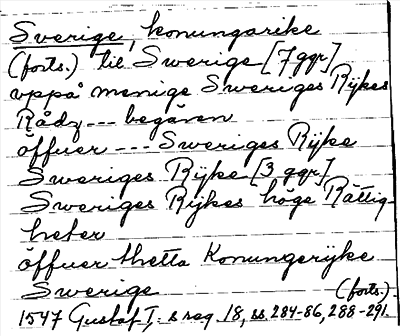 Sverige, konungarike
(forts.) til Swerige [7 ggr]
vppå menige Sweriges Rijkes
Rådz --- begären
öffuer --- Sweriges Rijke
Sweriges Rijke [3 ggr]
Sweriges Rijkes höge Rättig-
heter
öffuer thetta Konungerijke
Swerige (forts.)
1547 Gustaf I:s reg. 18, ss 284-86, 288-291.